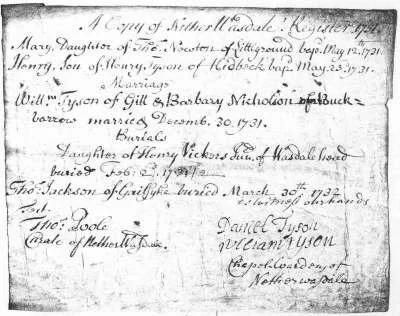 A Copy of Nether Wasdale's Register 1731.
Mary, Daughter of Tho: Newton of Littleground bap: May 12th, 1731.
Henry, Son of Henry Tyson of Kidbeck bap: May 23d, 1731.
Marriag
Willm Tyson of Gill & Barbary Nicholson of Buck=
barrow married Decemb. 30. 1731.
Burials
Daughter of Henry Vickers Jun: of Wasdale head
buried Feb: 2d, 1731/2
Tho: Jackson of buried March 30th 1732
as witness our hands
Tho: Poole
Curate of Nether Wasdale
Daniel Tyson
William Tyson
Chapel-wardens of
Netherwasdale